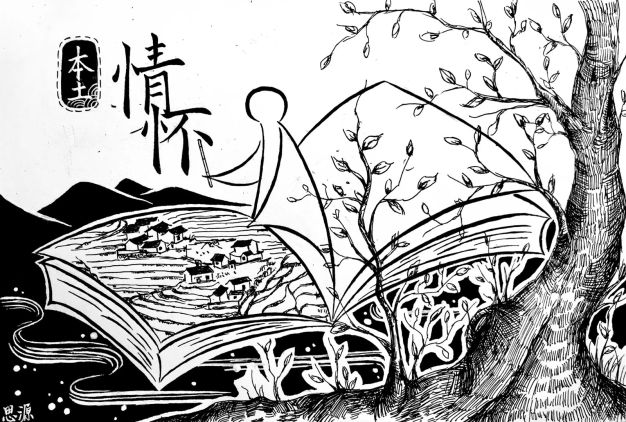 本土
情怀
思源